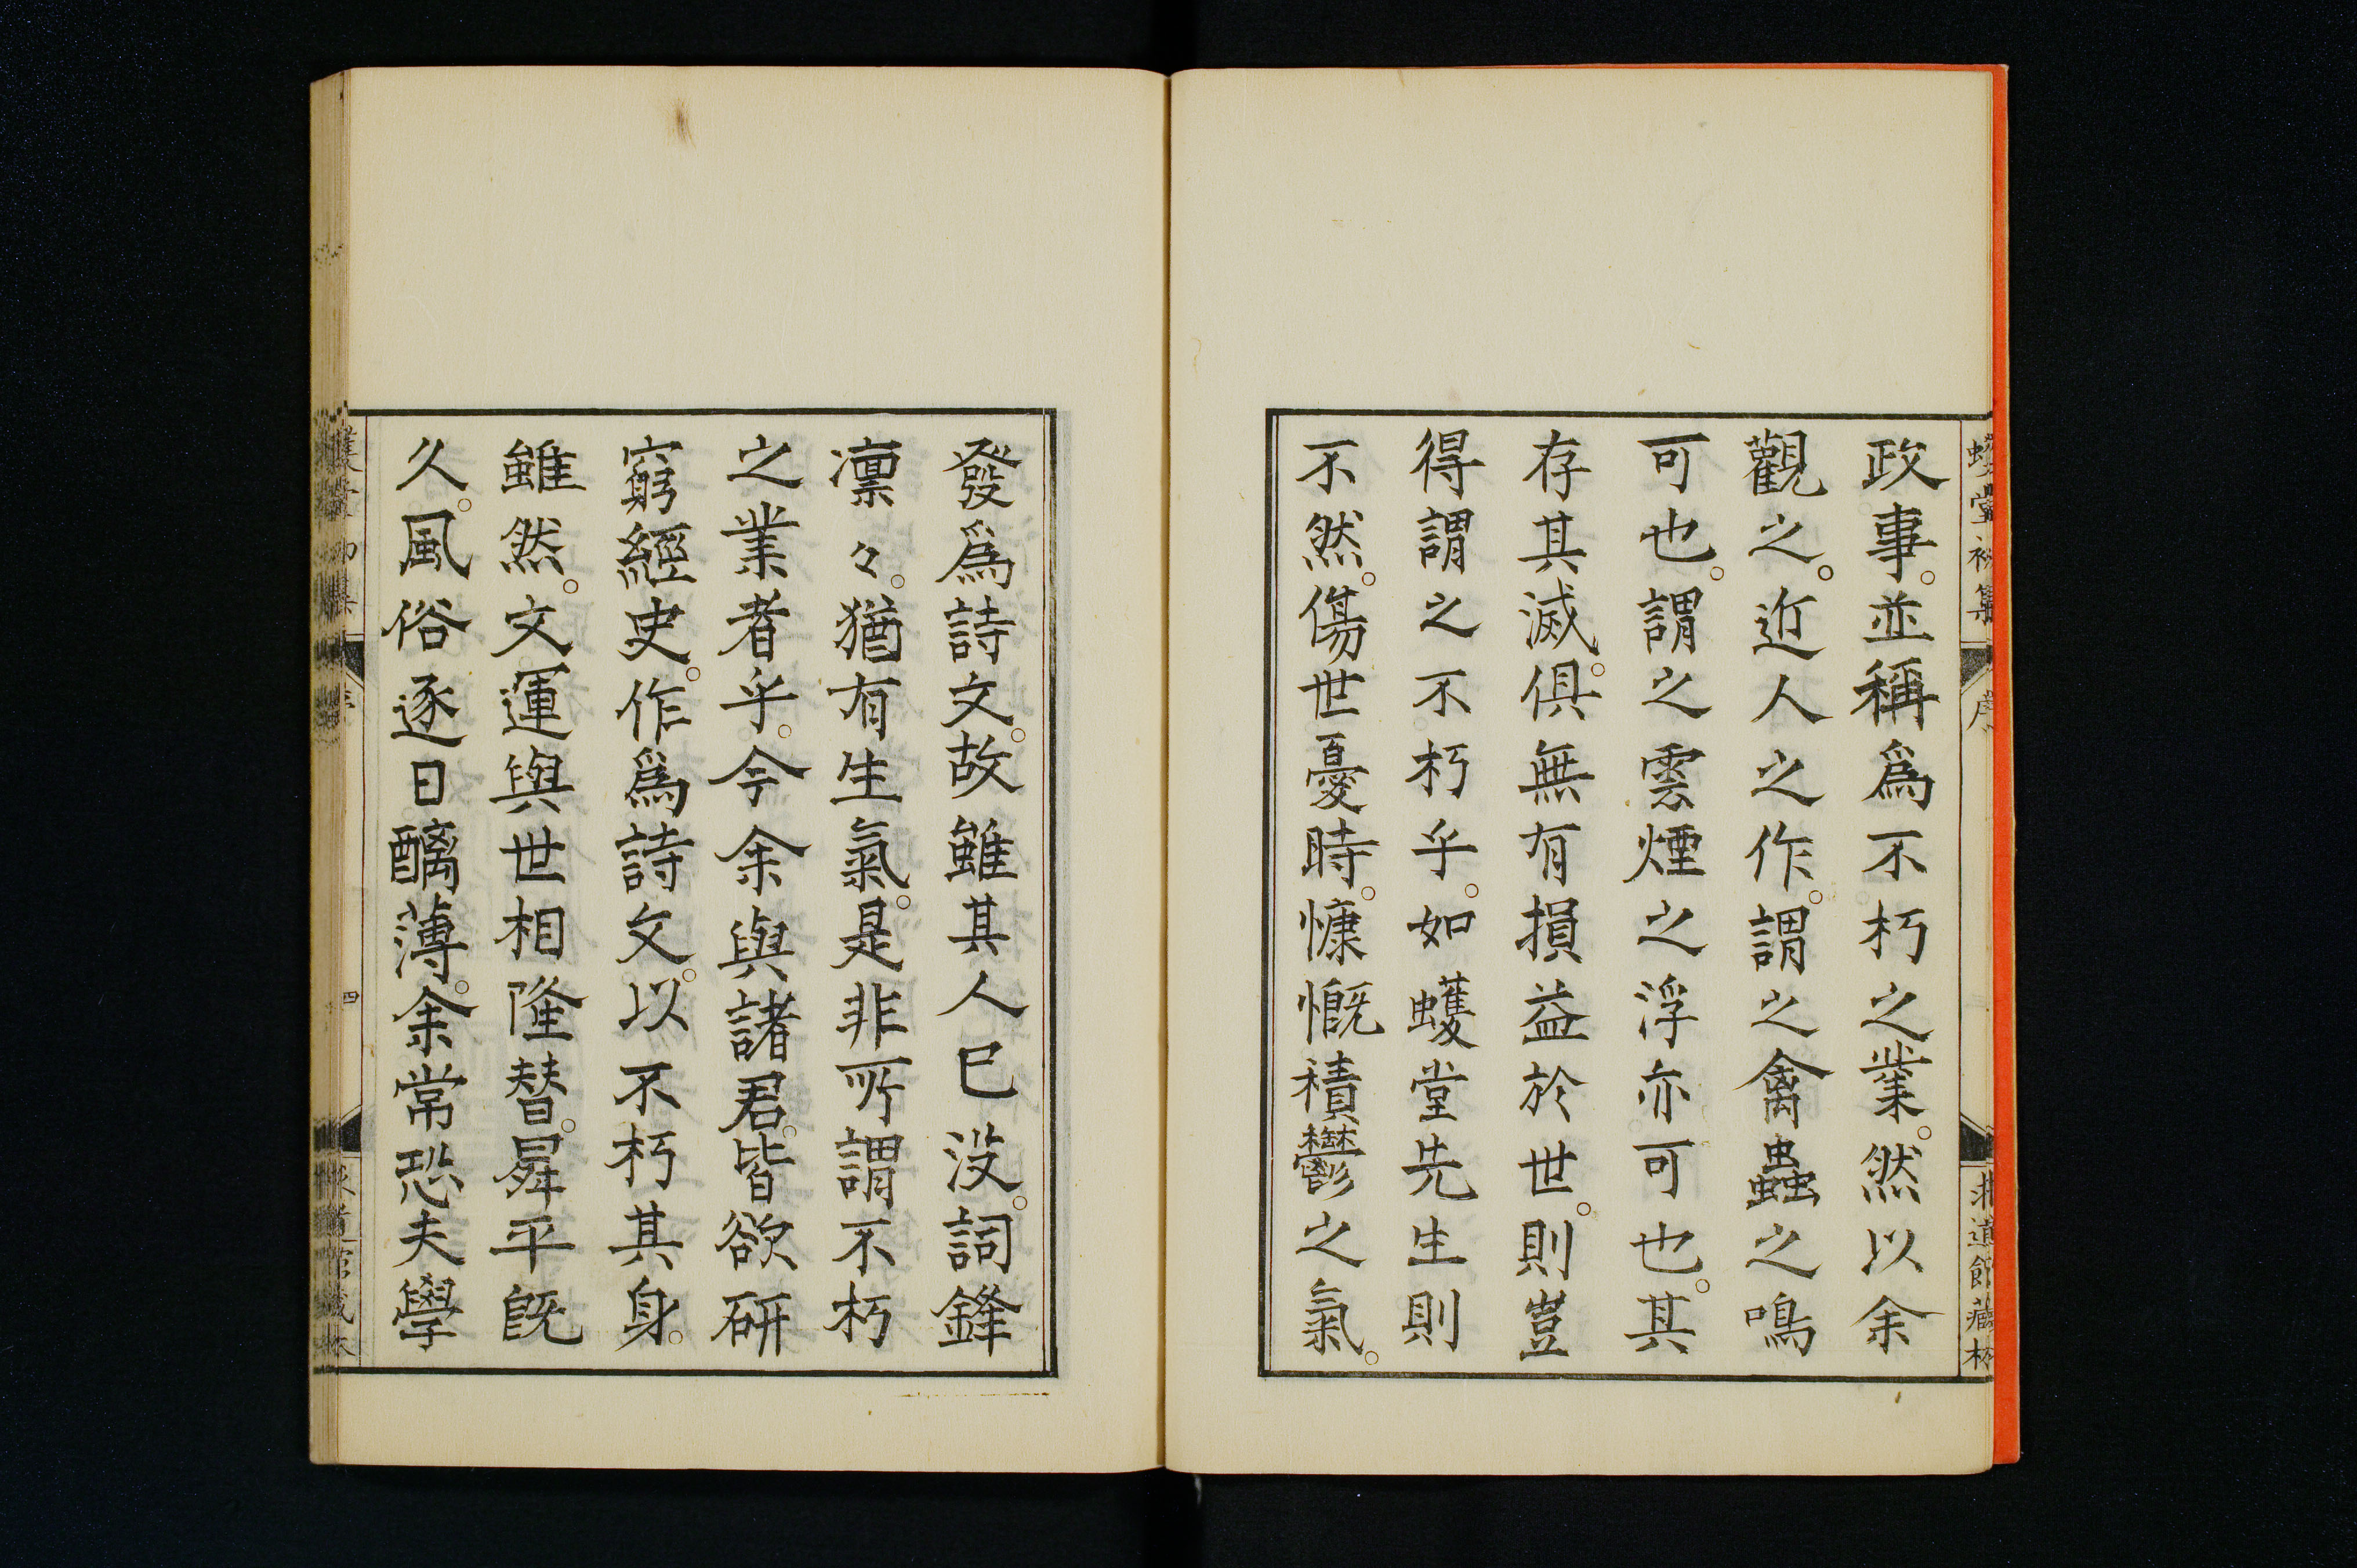 政事。並稱爲不朽之業。然以余
觀之。近人之作。謂之禽蟲之鳴
可也。謂之雲煙之浮亦可也。其
存其滅。俱無有損益於世。則豈
得謂之不朽乎。如蠖堂先生則
不然。傷世憂時。慷慨積鬱之氣。
發爲詩文。故雖其人已没。詞鋒
凛々。猶有生氣。是非所謂不朽
之業者乎。今余與諸君。皆欲研
窮經史。作爲詩文。以不朽其身。
雖然。文運與世相隆替。曻平既
久。風俗逐日醨薄。余常恐夫學
四